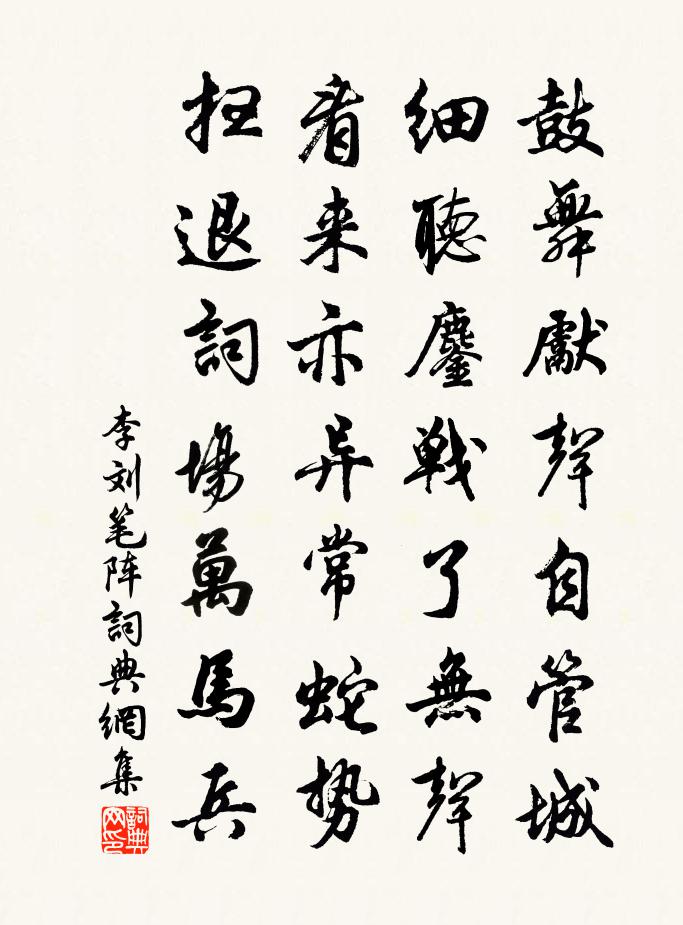 鼓舞獻聲自管城
細聴鏖戦了無聲
看来亦异常蛇势
拒退詞場萬馬兵
李刘笔阵詞典網集
詞典网印